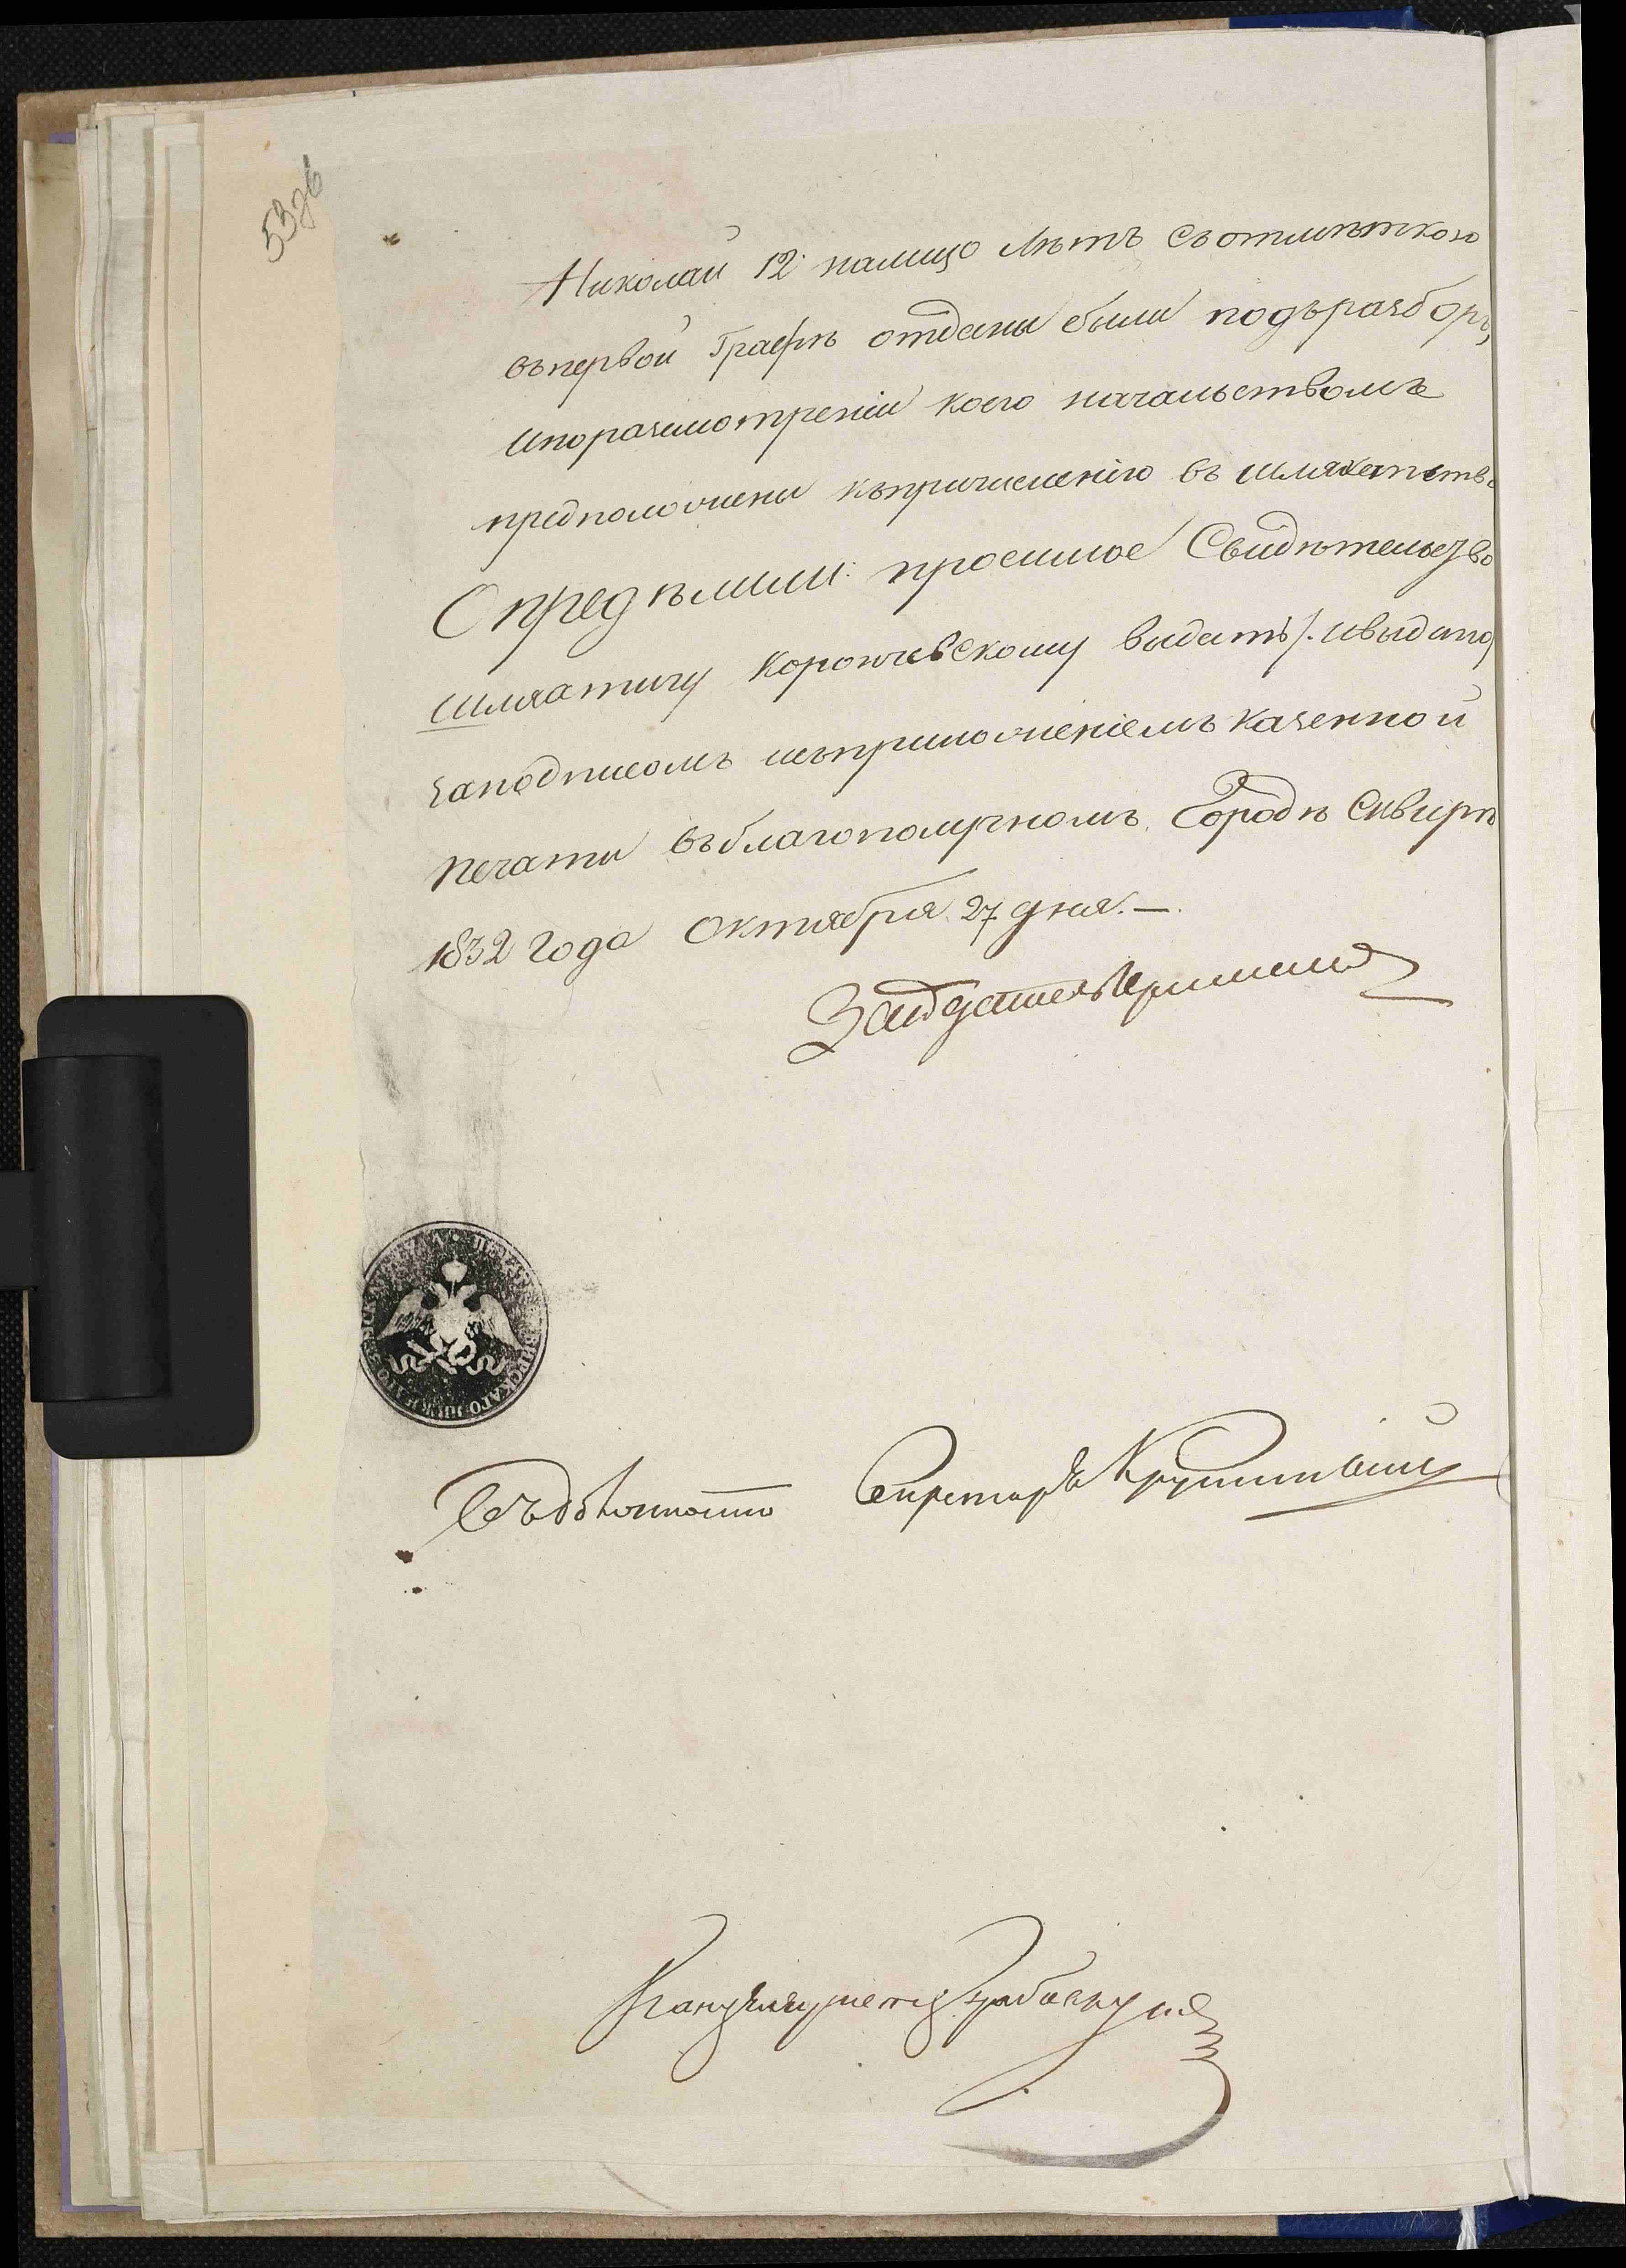 53зв
Николай 12 налицо лѣтъ съотмѣткою
въпервой Графѣ отданы были подъразборъ,
ипоразсмотренiи коего начальствомъ
предположены къпричисленiю въ шляхетство
Опредѣлили: просимое Свидѣтельство
шляхтичу Корончевскому выдать /. ивыдано
заподписомъ исъприложенiемъ казенной
печати въблагополучномъ Городѣ Сквирѣ
1832 года Октября 27 дня. —.
Засѣдатель
Секретарь
Канцеляристъ